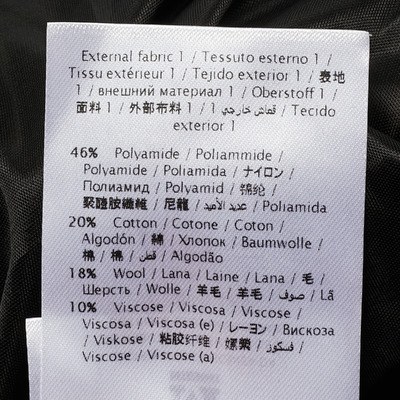 External fabric 1 / Tessuto esterno 1 /
Tissu extérieur 1 / Tejido exterior 1 / 表地
1 / внешний материал 1 / Oberstoff 1 /
面料 1 / 外部布料 1 / قماش خارجي 1 / Tecido
exterior 1
46% Polyamide / Poliammide /
Polyamide / Poliamida / ナイロン /
Полиамид / Polyamid / 锦纶 /
聚醯胺纖維 / 尼龍 / عديد الأميد / Poliamida
20% Cotton / Cotone / Coton /
Algodón / 綿 / Хлопок / Baumwolle /
棉 / 棉 / قطن / Algodão
18% Wool / Lana / Laine / Lana / 毛 /
Шерсть / Wolle / 羊毛 / 羊毛 / صوف / Lã
10% Viscose / Viscosa / Viscose /
Viscosa / Viscosa (e) / レーヨン / Вискоза
/ Viskose / 粘胶纤维 / 嫘縈 / فسكوز /
Viscose / Viscose (a)